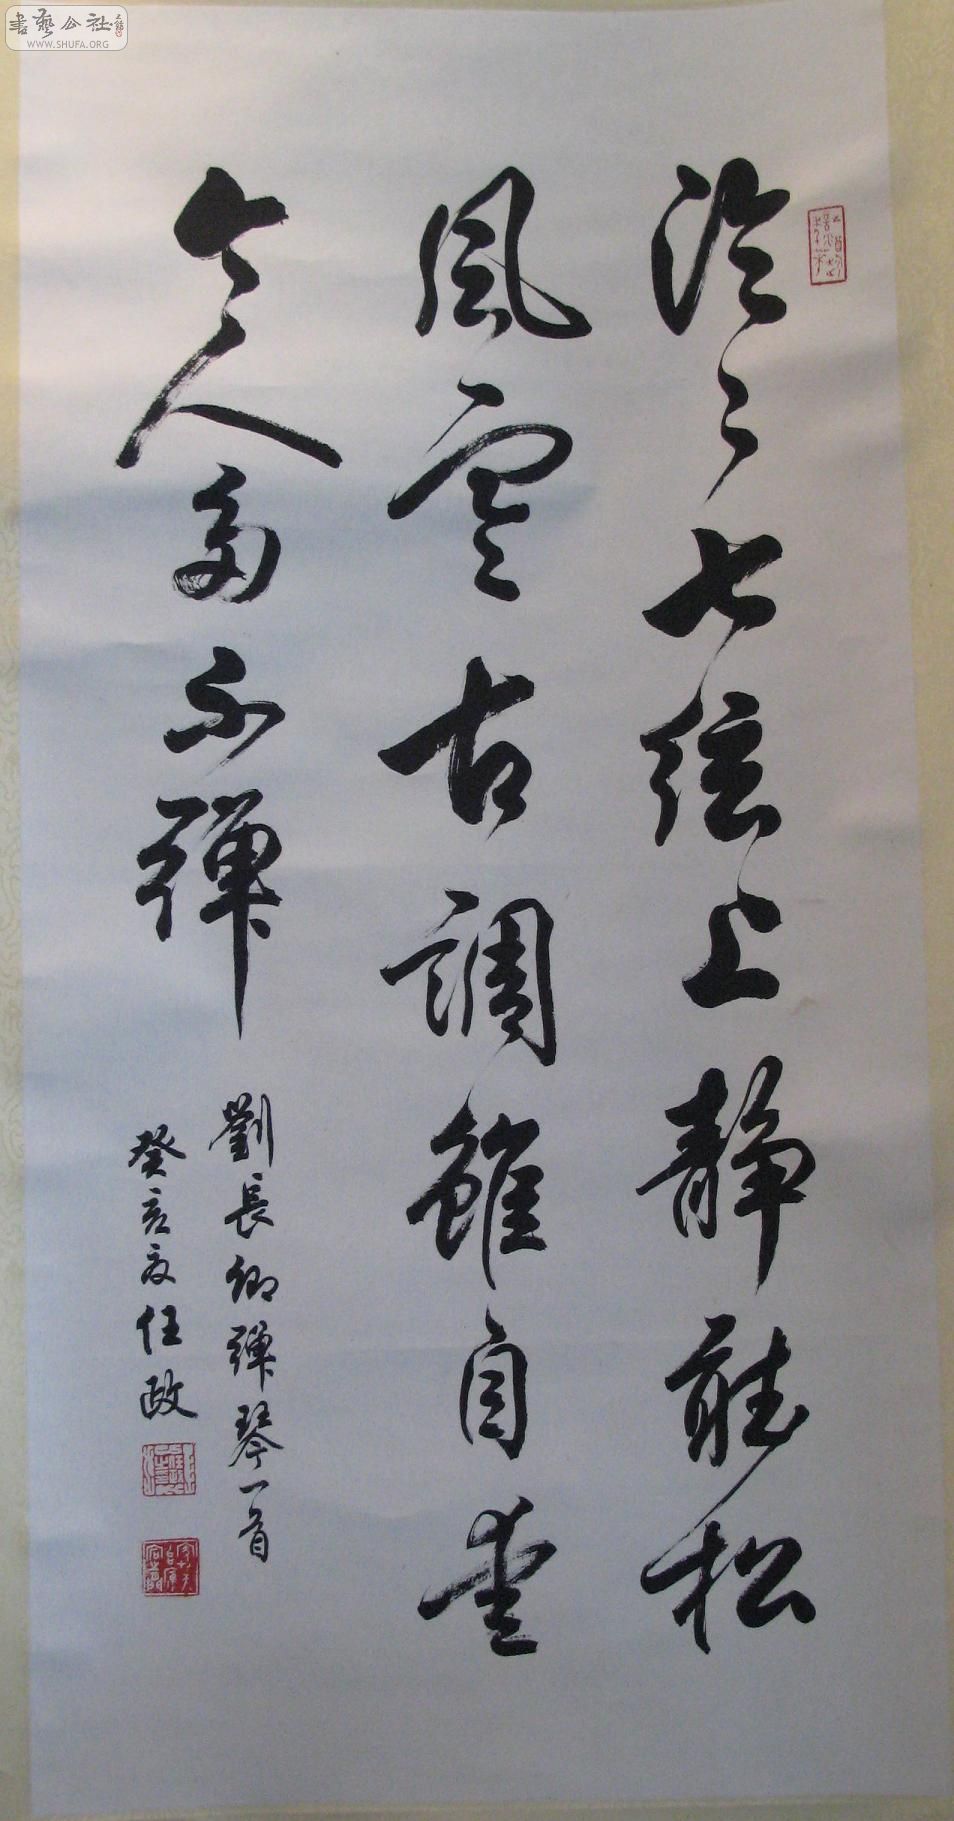 泠〻七弦上静聴松
風寒古調雖自愛
今人多不彈
劉長卿彈琴一首
癸亥夏任政
書藝公社
WWW.SHUFA.ORG